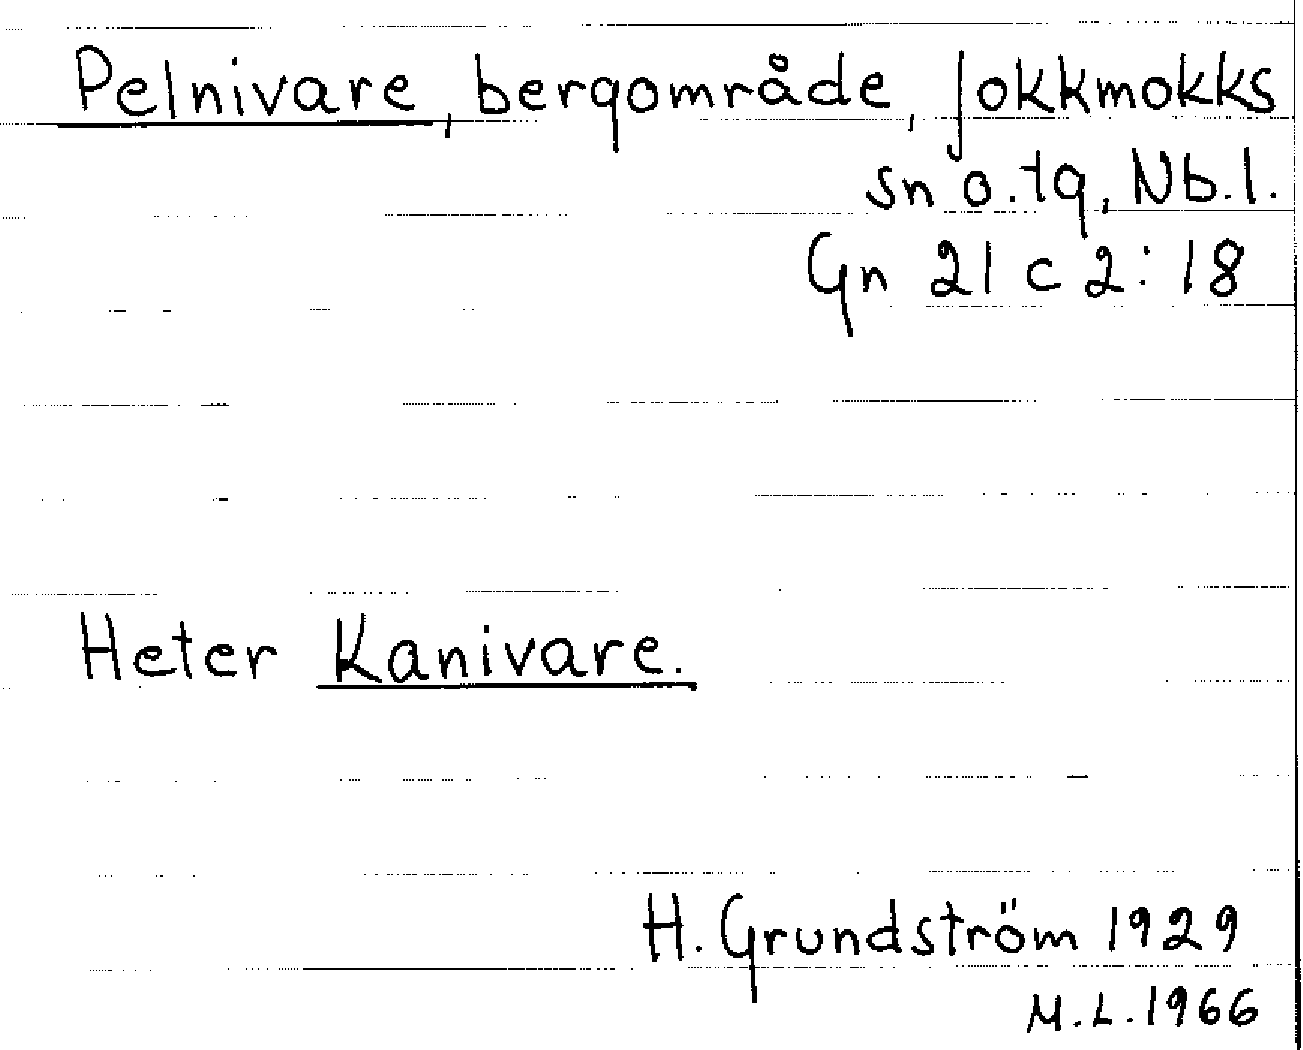 Pelnivare, bergområde, Jokkmokks
sn o. tg, Nb.l.
Gn 21 c 2:18
Heter Kanivare.
H. Grundström 1929
M.L. 1966